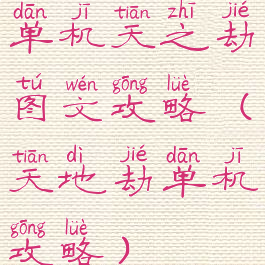 dān jī tiān zhī jié
单机天之劫
tú wén gōng lüè
图文攻略（
tiān dì jié dān jī
天地劫单机
gōng lüè
攻略）